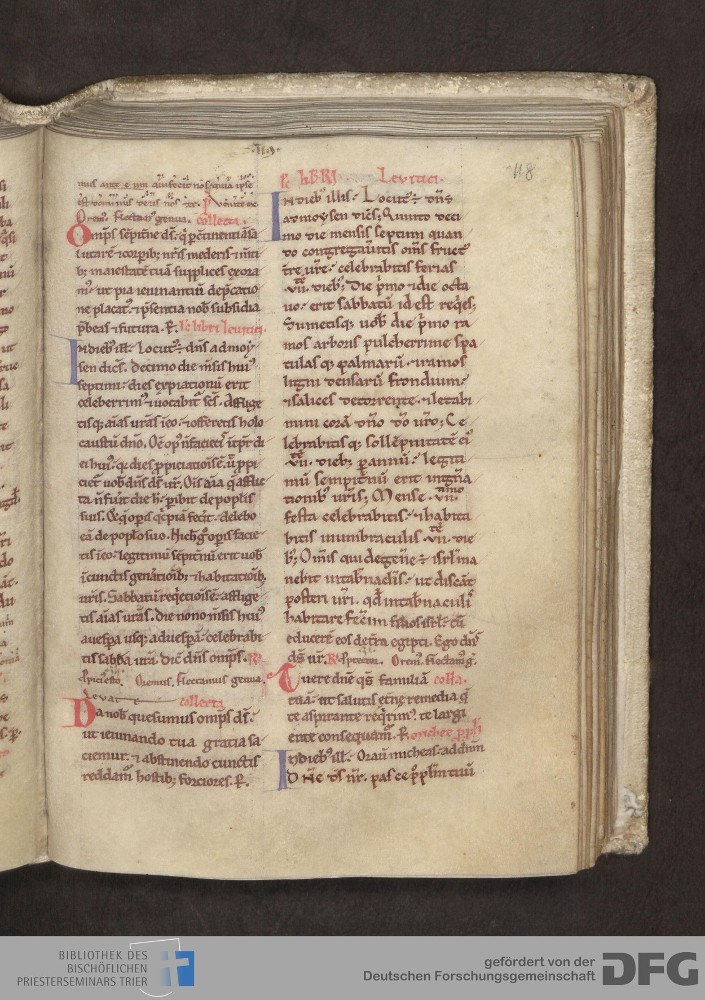 ·II9·
118
Orem. flectam9 genua. collecta.
Omps sempitne ds. q penitentia sa
lutare ĩ corporib; nris mederis ĩmiti
b; maiestate tuā supplices exora
m9. ut pia ieiunantiū depcatio
ne placat9. ĩ psentia nob subsidia
pbeas ĩ futura. P. Lc libri leuitici.
In dieb9 ill. Locut9 ē dns ad moy
sen dics. Decimo die m̄sis hui9
septimi. dies expiationū erit
celeberrim9 ĩ uocabit scs. Afflige
tisq; aīas urās ĩ eo. ĩ offeretis holo
caustū dno. Oē op9 n̄ facieci ĩ tpr di
ei hui9. q; dies ppiciationis ē. ut ppi
ciet uob dns ds ur. Ois aīa q afflic
ta n̄ fuit die h. pibit de poplis
suis. Oē q opis qcpiā fecit. delebo
eā de poplo suo. Nichil g opis facie
tis ĩ eo. legitimū sepitnū erit uob
ĩ cunctis genationib; ĩ habitationib;
uris. Sabbatū reqetionis ē. afflige
tis aīas urās. die nono m̄sis hui9
a uespa usq; ad uespā. celebrabi
tis sabba ura. Dic dns omps. R
Spicc esto. Oremus. flectamus genua.
Leuate collecta
Da nob quesumus omps ds.
ut ieiunando tua gratia sa
ciemur. ĩ abstinendo cunctis
reddam hostib; forciores. P.
Lc lib RI Leuitici.
In dieb9 illis. Locut9 ē dns
ad moysen dics. Quinto deci
mo die mensis septimi quan
do congregauitis oms fruct9
tre ure. celebrabitis ferias
.VII. dieb; Die pmo ĩ die octa
uo. erit sabbatū id est reqies.
Sumetisq; uob die pmo ra
mos arboris pulcherrime spa
tulasq; palmarū. ĩ ramos
ligni densarū frondium.
ĩ salices de torrente. ĩ letabi
mini corā dno do uro. Ce
lebrabitisq; sollēpnitatē ei9
.VII. dieb; p annū. legiti
mū sempitnū erit in gna
tionib9 uris. Mense .VII.mo
festa celebrabitis. ĩ habita
bitis in umbraculis .VII. die
b; Omis qui de gene ē isrl ma
nebit in tabnaclis. ut discāt
posteri uri. qd in tabnaculis
habitare fecim filios isrl. cū
educere eos de tra egipti. Ego dns
ds ur. R Orem9. flectam9 g.
Tuere dne qs familiā colla.
tuā. ut salutis etne remedia q
te aspirante reqrim9. te largi
ente consequam. P. onchee pph
In dieb9 ill. Orau micheas ad dnm
D NE ds nr. pasce pplm tuū
BIBLIOTHEK DES
BISCHÖFLICHEN
PRIESTERSEMINARS TRIER
gefördert von der
Deutschen Forschungsgemeinschaft
DFG